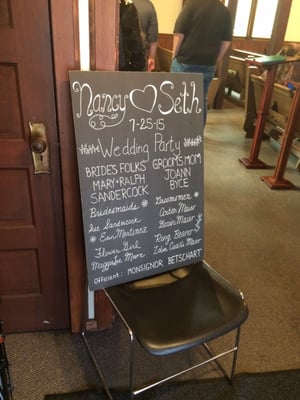 Nancy ♡ Seth
7-25-15
Wedding Party
BRIDES FOLKS
MARY + RALPH
SANDERCOCK
GROOMS MOM
JOANN
BYCE
Bridesmaids
Sue Sandercock
Erin Martinez
Flower Girl
Maggie Moore
Groomsmen
Maier
Maier
Ring Bearer
Maier
Officiant: MONSIGNOR BETSCHART